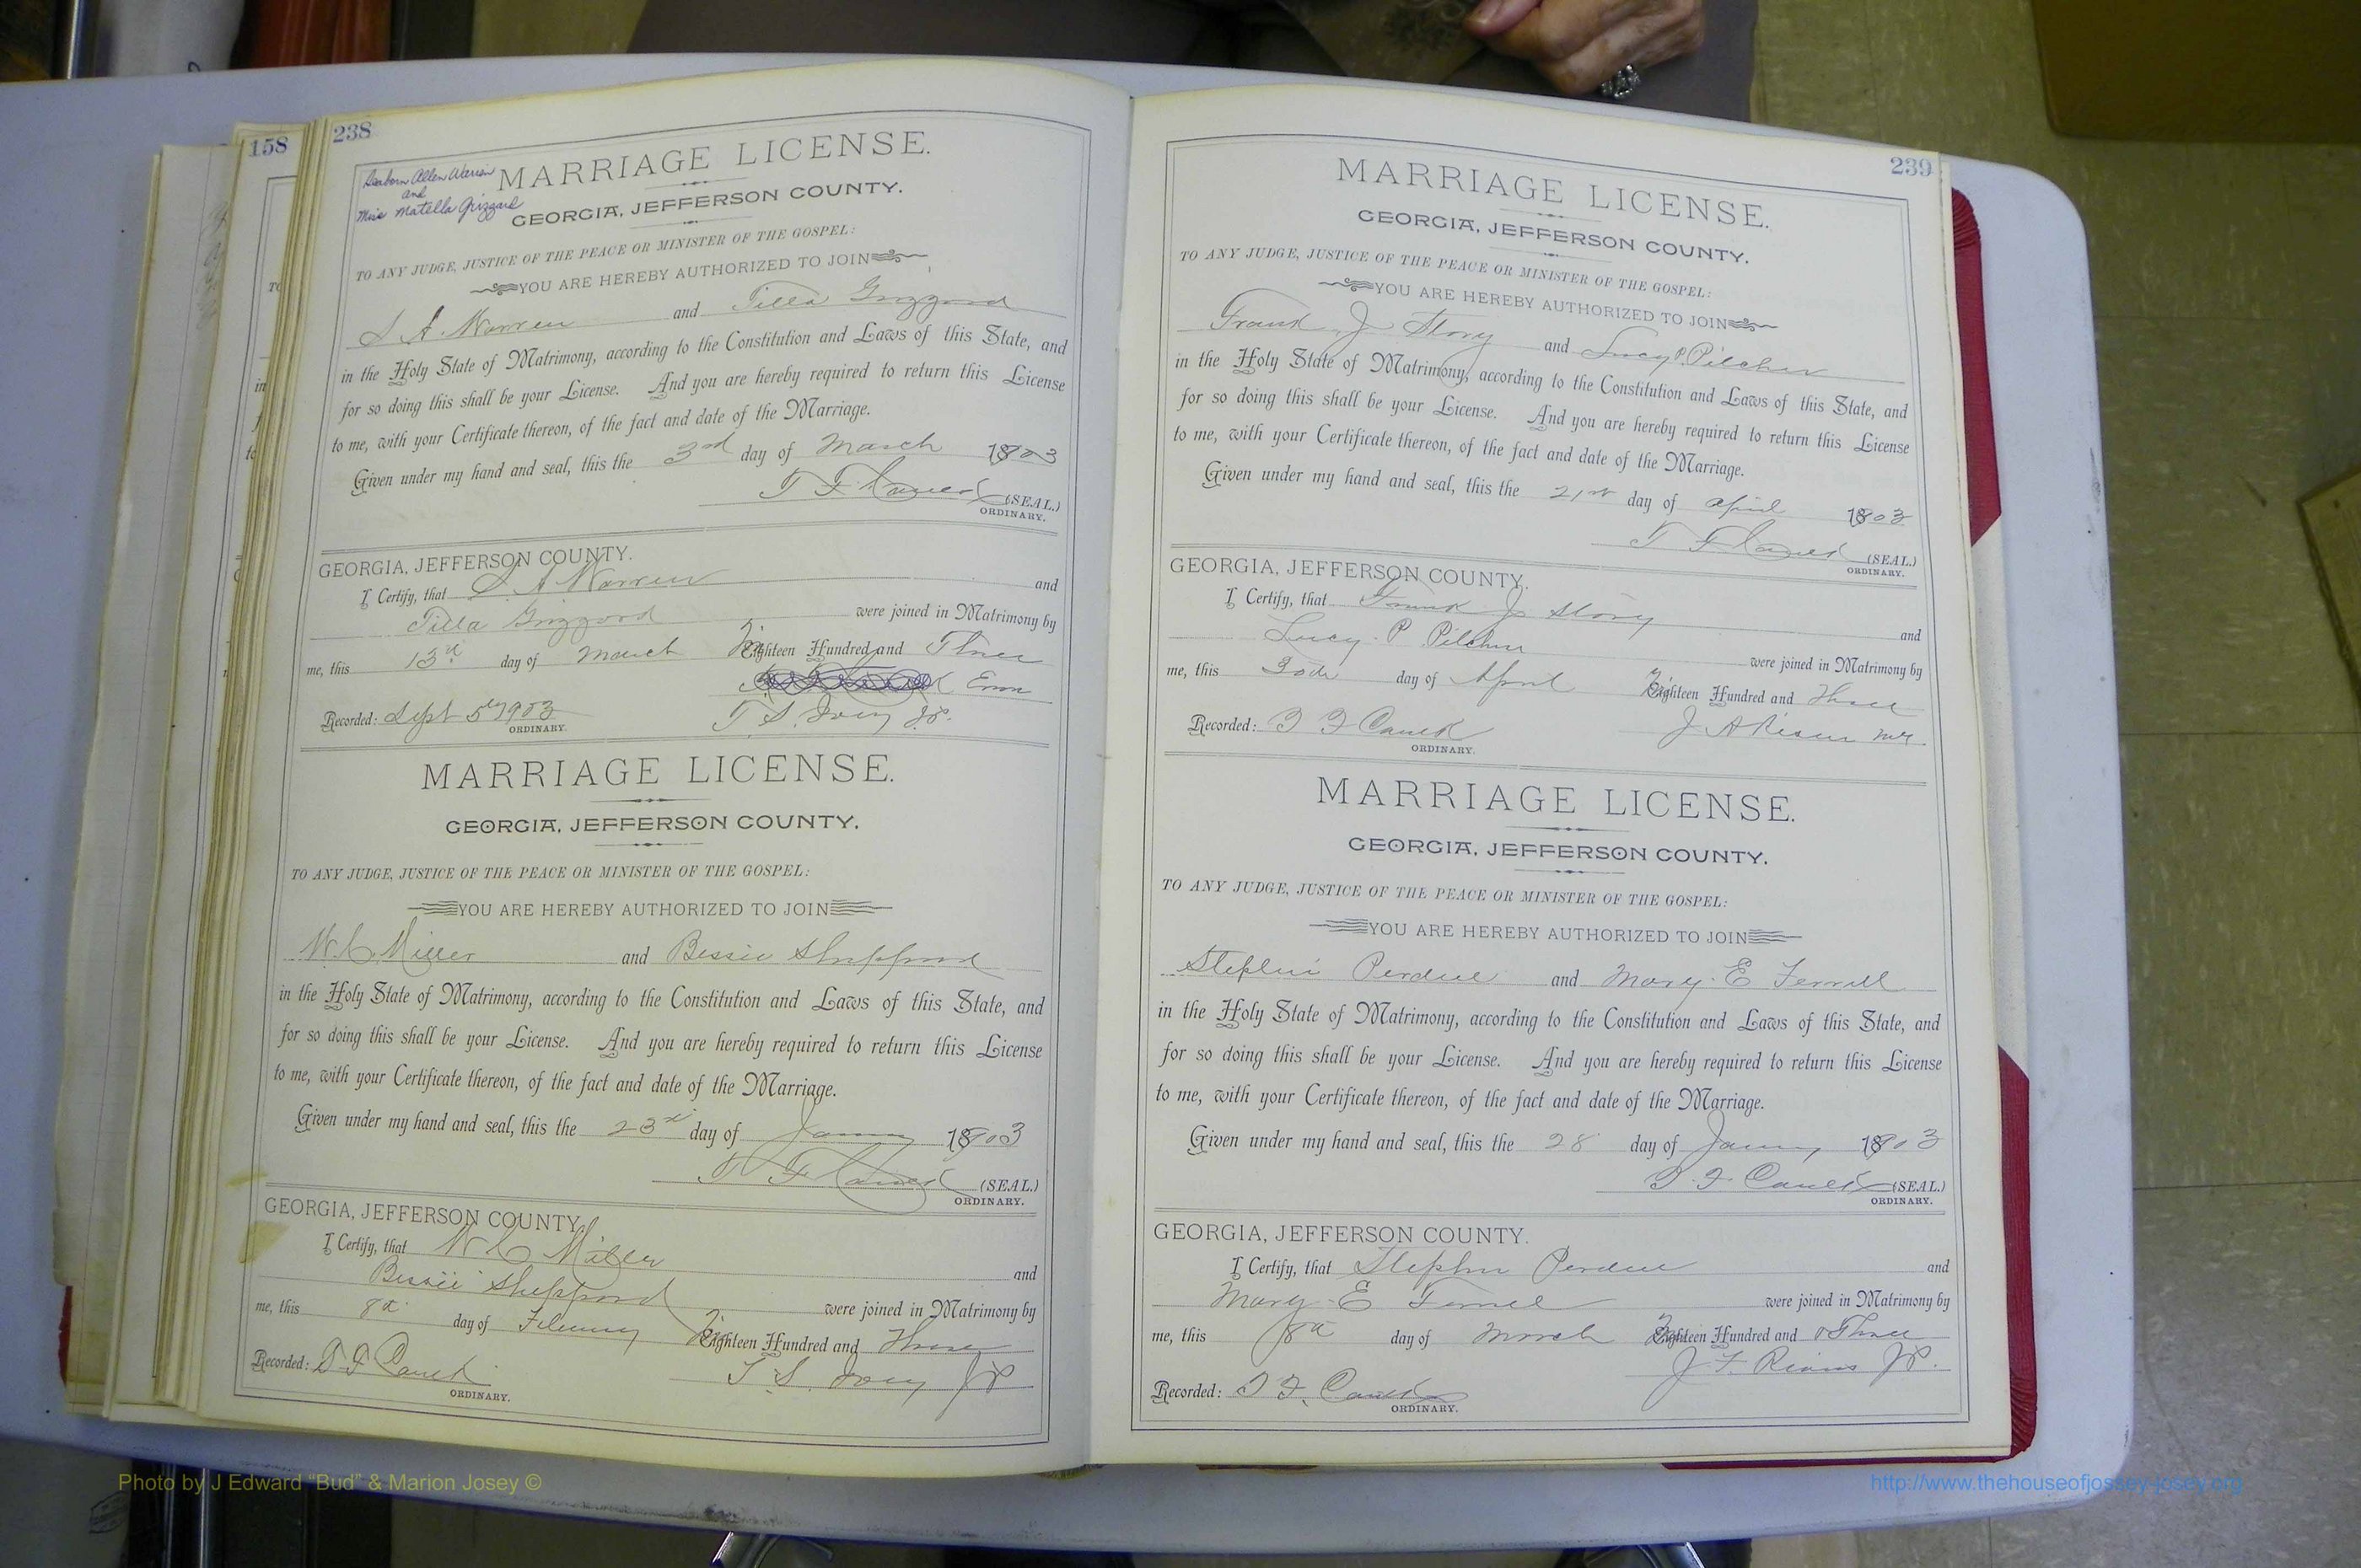 158
238
Seaborn Allen Warren
and
Miss Matella Grizzard
MARRIAGE LICENSE.
GEORGIA, JEFFERSON COUNTY.
TO ANY JUDGE, JUSTICE OF THE PEACE OR MINISTER OF THE GOSPEL:
YOU ARE HEREBY AUTHORIZED TO JOIN
S A Warren and Tilla Grizzard
in the Holy State of Matrimony, according to the Constitution and Laws of this State, and
for so doing this shall be your License. And you are hereby required to return this License
to me, with your Certificate thereon, of the fact and date of the Marriage.
Given under my hand and seal, this the 3rd day of March 1903
(SEAL.)
ORDINARY.
GEORGIA, JEFFERSON COUNTY.
I Certify, that S. A Warren and
Tilla Grizzard were joined in Matrimony by
me, this 13th day of March Eighteen Hundred and Three
Error
Recorded: Sept 5th 1903 T. S. Ivey JP.
ORDINARY.
MARRIAGE LICENSE.
GEORGIA, JEFFERSON COUNTY.
TO ANY JUDGE, JUSTICE OF THE PEACE OR MINISTER OF THE GOSPEL:
YOU ARE HEREBY AUTHORIZED TO JOIN
W. C Miller and Bessie Sheppard
in the Holy State of Matrimony, according to the Constitution and Laws of this State, and
for so doing this shall be your License. And you are hereby required to return this License
to me, with your Certificate thereon, of the fact and date of the Marriage.
Given under my hand and seal, this the 23rd day of 1903
(SEAL.)
ORDINARY.
GEORGIA, JEFFERSON COUNTY.
I Certify, that W C Miller and
Bessie Sheppard were joined in Matrimony by
me, this 8th day of Eighteen Hundred and Three
Recorded: T. S. Ivey JP
ORDINARY.
239
MARRIAGE LICENSE.
GEORGIA, JEFFERSON COUNTY.
TO ANY JUDGE, JUSTICE OF THE PEACE OR MINISTER OF THE GOSPEL:
YOU ARE HEREBY AUTHORIZED TO JOIN
Frank J Story and Lucy P. Pilcher
in the Holy State of Matrimony, according to the Constitution and Laws of this State, and
for so doing this shall be your License. And you are hereby required to return this License
to me, with your Certificate thereon, of the fact and date of the Marriage.
Given under my hand and seal, this the 21st day of April 1903
(SEAL.)
ORDINARY.
GEORGIA, JEFFERSON COUNTY.
I Certify, that Frank J Story and
Lucy P Pilcher were joined in Matrimony by
me, this day of April Eighteen Hundred and Three
Recorded:
ORDINARY.
MARRIAGE LICENSE.
GEORGIA, JEFFERSON COUNTY.
TO ANY JUDGE, JUSTICE OF THE PEACE OR MINISTER OF THE GOSPEL:
YOU ARE HEREBY AUTHORIZED TO JOIN
Perdue and Mary E
in the Holy State of Matrimony, according to the Constitution and Laws of this State, and
for so doing this shall be your License. And you are hereby required to return this License
to me, with your Certificate thereon, of the fact and date of the Marriage.
Given under my hand and seal, this the 28 day of 1903
(SEAL.)
ORDINARY.
GEORGIA, JEFFERSON COUNTY.
I Certify, that Perdue and
Mary E were joined in Matrimony by
me, this 8th day of March Eighteen Hundred and Three
Recorded:
ORDINARY.
Photo by J Edward “Bud” & Marion Josey ©
http://www.thehouseofjossey-josey.org